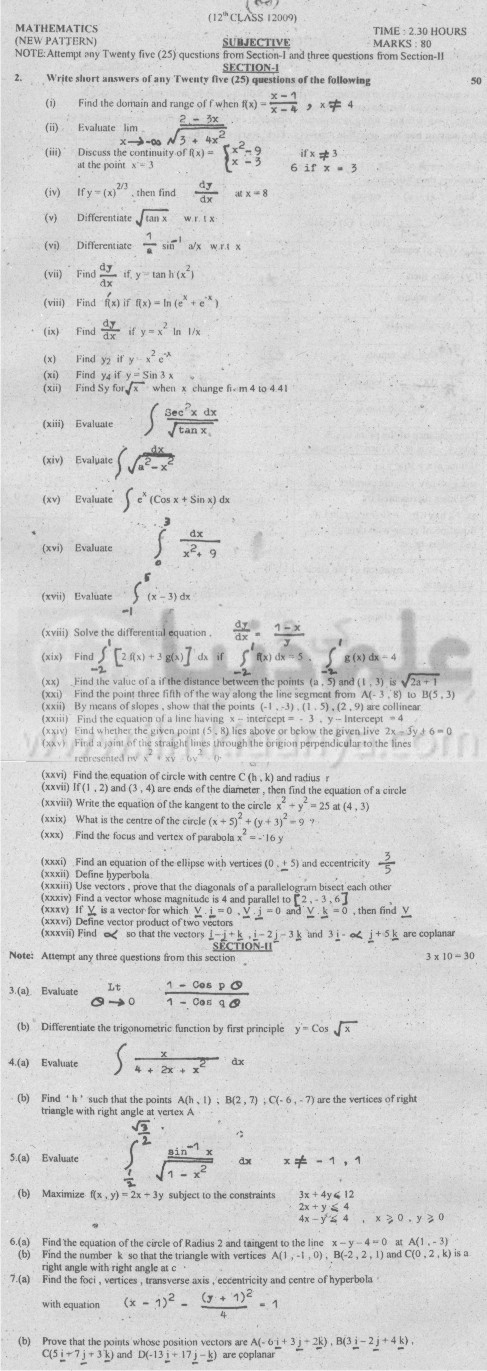 (12th CLASS 12009)
MATHEMATICS
(NEW PATTERN) SUBJECTIVE TIME : 2.30 HOURS
MARKS : 80
NOTE: Attempt any Twenty five (25) questions from Section-I and three questions from Section-II
SECTION-I
2. Write short answers of any Twenty five (25) questions of the following 50
(i) Find the domain and range of f when f(x) = (x - 1)/(x - 4) , x ≠ 4
(ii) Evaluate lim x→-∞ (2 - 3x)/√(3 + 4x²)
(iii) Discuss the continuity of f(x) = { x² - 9 / x - 3 if x ≠ 3
at the point x = 3 6 if x = 3
(iv) If y = (x)^2/3 , then find dy/dx at x = 8
(v) Differentiate √tan x w.r. t x
(vi) Differentiate 1/a sin⁻¹ a/x w.r.t x
(vii) Find dy/dx if, y = tan h (x²)
(viii) Find f'(x) if f(x) = ln (e^x + e^-x)
(ix) Find dy/dx if y = x² ln 1/x
(x) Find y₂ if y x² e^-x
(xi) Find y₄ if y = Sin 3 x
(xii) Find Sy for √x when x change from 4 to 4.41
(xiii) Evaluate ∫ Sec²x dx / √tan x
(xiv) Evaluate ∫ dx / √(a² - x²)
(xv) Evaluate ∫ e^x (Cos x + Sin x) dx
(xvi) Evaluate ∫₀³ dx / (x² + 9)
(xvii) Evaluate ∫₋₁⁵ (x - 3) dx
(xviii) Solve the differential equation , dy/dx = (1 - x)/y
(xix) Find ∫₋₂¹ [2 f(x) + 3 g(x)] dx if ∫₋₂¹ f(x) dx = 5 , ∫₋₂¹ g (x) dx = 4
(xx) Find the value of a if the distance between the points (a , 5) and (1 , 3) is √(2a + 1)
(xxi) Find the point three fifth of the way along the line segment from A(- 3 , 8) to B(5 , 3)
(xxii) By means of slopes , show that the points (-1 , -3) , (1 , 5) , (2 , 9) are collinear
(xxiii) Find the equation of a line having x - intercept = - 3 , y - Intercept = 4
(xxiv) Find whether the given point (5 , 8) lies above or below the given live 2x - 3y + 6 = 0
(xxv) Find a joint of the straight lines through the origion perpendicular to the lines
represented by x² + xy 6y² 0
(xxvi) Find the equation of circle with centre C (h , k) and radius r
(xxvii) If (1 , 2) and (3 , 4) are ends of the diameter , then find the equation of a circle
(xxviii) Write the equation of the kangent to the circle x² + y² = 25 at (4 , 3)
(xxix) What is the centre of the circle (x + 5)² + (y + 3)² = 9 ?
(xxx) Find the focus and vertex of parabola x² = - 16 y
(xxxi) Find an equation of the ellipse with vertices (0 , ± 5) and eccentricity 3/5
(xxxii) Define hyperbola
(xxxiii) Use vectors , prove that the diagonals of a parallelogram bisect each other
(xxxiv) Find a vector whose magnitude is 4 and parallel to [2 , - 3 , 6]
(xxxv) If V is a vector for which V . i = 0 , V . j = 0 and V . k = 0 , then find V
(xxxvi) Define vector product of two vectors
(xxxvii) Find ∝ so that the vectors i - j + k , i - 2 j - 3 k and 3 i - ∝ j + 5 k are coplanar
SECTION-II
Note: Attempt any three questions from this section 3 x 10 = 30
3.(a) Evaluate Lt θ→0 (1 - Cos p θ)/(1 - Cos q θ)
(b) Differentiate the trigonometric function by first principle y = Cos √x
4.(a) Evaluate ∫ x/(4 + 2x + x²) dx
(b) Find ' h ' such that the points A(h , 1) ; B(2 , 7) ; C(- 6 , - 7) are the vertices of right
triangle with right angle at vertex A
5.(a) Evaluate ∫ from 1/2 to √3/2 sin⁻¹ x / √(1 - x²) dx x ≠ - 1 , 1
(b) Maximize f(x , y) = 2x + 3y subject to the constraints 3x + 4y ⩽ 12
2x + y ⩽ 4
4x - y ⩽ 4 , x ⩾ 0 , y ⩾ 0
6.(a) Find the equation of the circle of Radius 2 and taingent to the line x - y - 4 = 0 at A(1 , - 3)
(b) Find the number k so that the triangle with vertices A(1 , -1 , 0) , B(-2 , 2 , 1) and C(0 , 2 , k) is a
right angle with right angle at c
7.(a) Find the foci , vertices , transverse axis , eccentricity and centre of hyperbola
with equation (x - 1)² - (y + 1)²/4 = 1
(b) Prove that the points whose position vectors are A(- 6 i + 3 j + 2k) , B(3 i - 2 j + 4 k) ,
C(5 i + 7 j + 3 k) and D(-13 i + 17 j - k) are coplanar